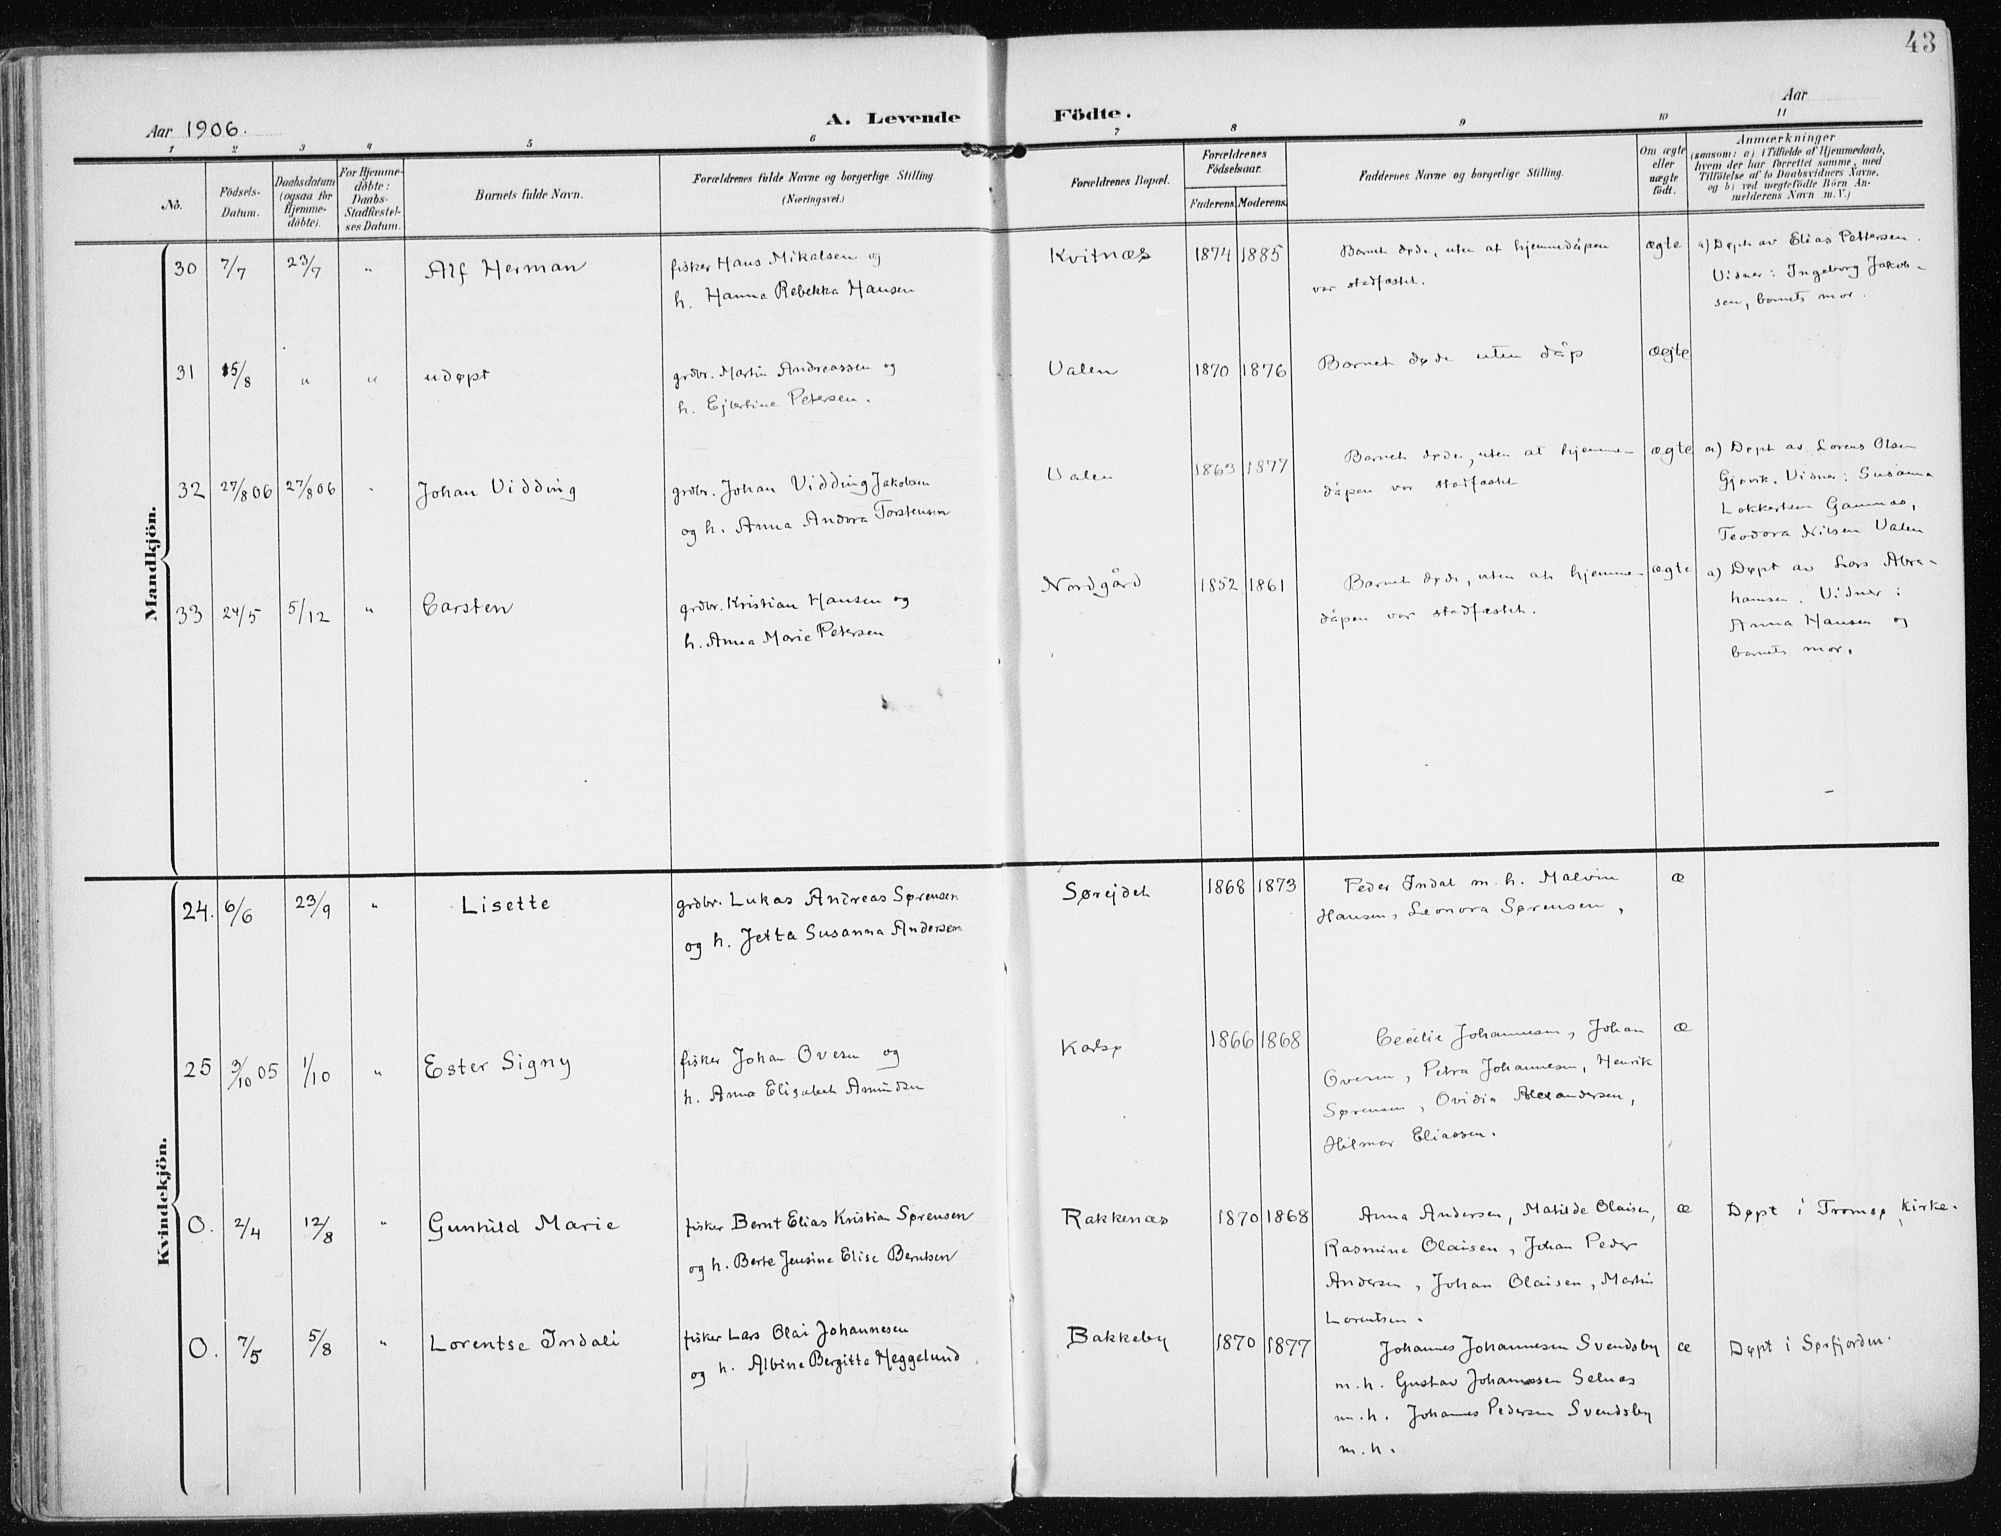 43
Aar 1906.
A. Levende Födte.
Aar
1 2 3 4 5 6 7 8 9 10 11
No.
Födsels-
Datum.
Daabsdatum
(ogsaa for
Hjemme-
döbte).
For Hjemme-
döbte:
Daabs-
Stadfæstel-
ses Datum.
Barnets fulde Navn.
Forældrenes fulde Navne og borgerlige Stilling.
(Næringsvei.)
Forældrenes Bopæl.
Forældrenes
Födselsaar.
Faderens. Moderens.
Faddernes Navne og borgerlige Stilling.
Om ægte
eller
uægte
födt.
Anmærkninger
(saasom: a) i Tilfælde af Hjemmedaab,
hvem der har forrettet samme, med
Tilföielse af to Daabsvidners Navne,
og b) ved uægtefödte Börn An-
melderens Navn m. V.)
Mandkjön.
30 7/7 23/7 " Alf Herman
fisker Hans Mikalsen og
h. Hanna Rebekka Hansen
Kvitnæs 1874 1885
Barnet døde, uten at hjemmedåpen
var stadfæstet.
ægte
a) Døpt av Elias Pettersen.
Vidner: Ingeborg Jakob-
sen, barnets mor.
31 15/8 " " udøpt
grdbr. Martin Andreassen og
h. Ejlertine Petersen.
Valen 1870 1876
Barnet døde uten dåp
ægte
32 27/8 06 27/8 06 " Johan Vidding
grdbr. Johan Vidding Jakobsen
og h. Anna Andora Torstensen
Valen 1863 1877
Barnet døde, uten at hjemme-
dåpen var stadfæstet
ægte
a) Døpt av Lorens Olsen
Gjøvik. Vidner: Susanna
Lokkertsen Gamnæs,
Teodora Nilsen Valen
33 24/5 5/12 " Carsten
grdbr. Kristian Hansen og
h. Anna Marie Petersen
Nordgård 1852 1861
Barnet døde, uten at hjemme-
dåpen var stadfæstet.
ægte
a) Døpt av Lars Abra-
hamsen. Vidner:
Anna Hansen og
barnets mor.
Kvindekjön.
24. 6/6 23/9 " Lisette
grdbr. Lukas Andreas Sørensen
og h. Jetta Susanna Andersen
Sørejdet 1868 1873
Peder Indal m. h. Malvin
Hansen, Leonora Sørensen,
æ
25 3/10 05 1/10 " Ester Signy
fisker Johan Oversen og
h. Anna Elisabeth Amundsen
Karlsø 1866 1868
Cecilie Johannesen, Johan
Oversen, Petra Johannesen, Henrik
Sørensen, Ovidia Alexandersen,
Hilmar Eliassen.
æ
O. 2/4 12/8 " Gunhild Marie
fisker Bernt Elias Kristian Sørensen
og h. Berte Jensine Elise Berntsen
Rakkenæs 1870 1868
Anna Andersen, Matilde Olaisen,
Rasmine Olaisen, Johan Peder
Andersen, Johan Olaisen, Martin
Lorentsen.
æ
Døpt i Tromsø Kirke.
O. 7/5 5/8 " Lorentse Indali
fisker Lars Olai Johannesen
og h. Albine Bergitte Heggelund
Bakkeby 1870 1877
Johannes Johannesen Svendsby
m. h. Gustav Johannesen Selnæs
m. h. Johannes Pedersen Svendsby
m. h.
æ
Døpt i Sørfjorden.